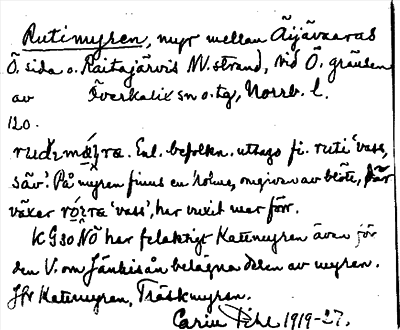 Rutimyren, myr mellan Äijävaaras
Ö. sida o. Raitajärvis N.V. strand, vid Ö. gränsen
av Överkalix sn o. tg, Norrb. l.
120.
Enl. befolkn. uttags fi. ruti 'vass,
säv'. På myren finns en holme, omgiven av blöte, där
växer 'vass', har vuxit mer förr.
K GSO NÖ har felaktigt Katimyren även för
den V. om Jänkisån belägna delen av myren.
Jfr Katimyren, Träskmyren.
Carin Pihl 1919-27.